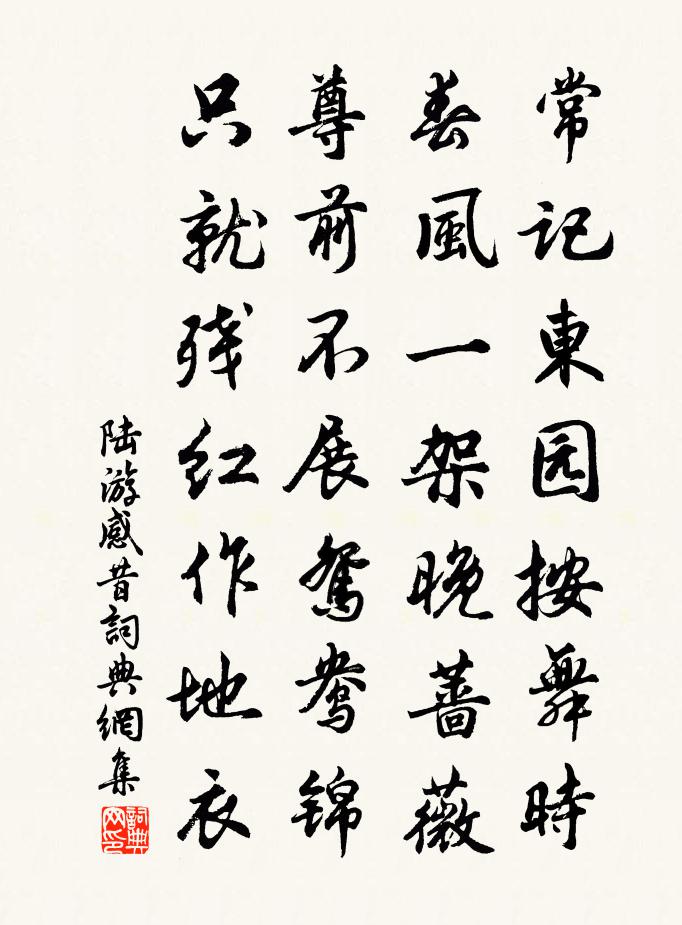 常记東园按舞時
春風一架晚蔷薇
尊前不展鴛鴦锦
只就残红作地衣
陆游感昔詞典網集
詞典网印